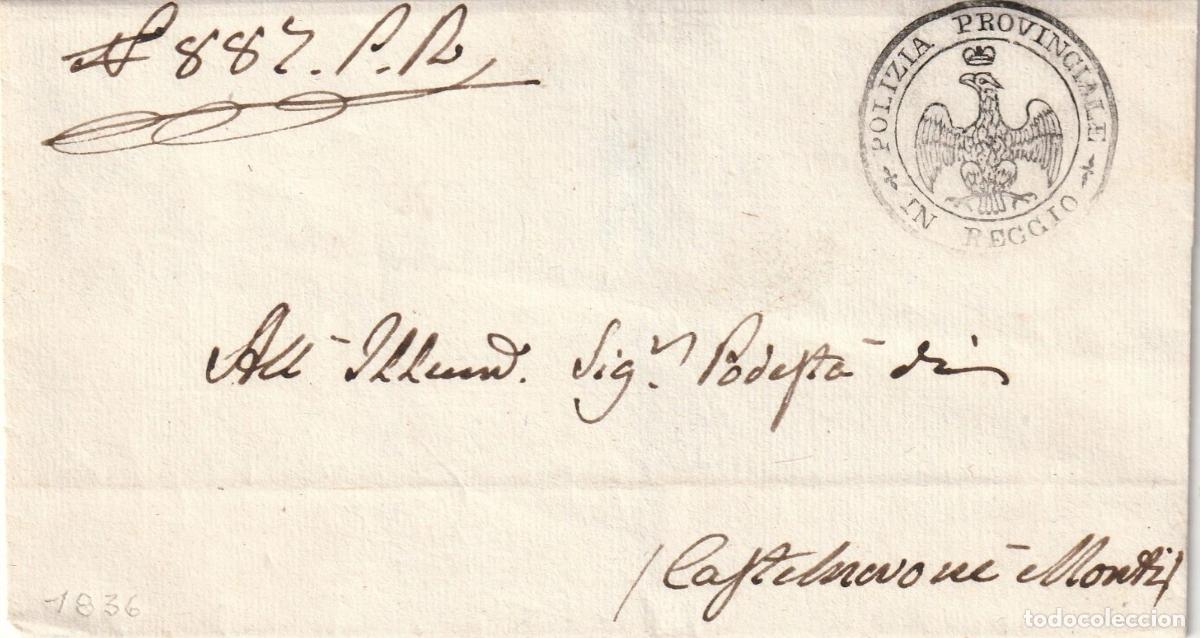 N 887. P. R.
POLIZIA PROVINCIALE
IN REGGIO
All' Illmo. Sigr. Podestà di
Castelnovo ne' Monti
1836
todocoleccion